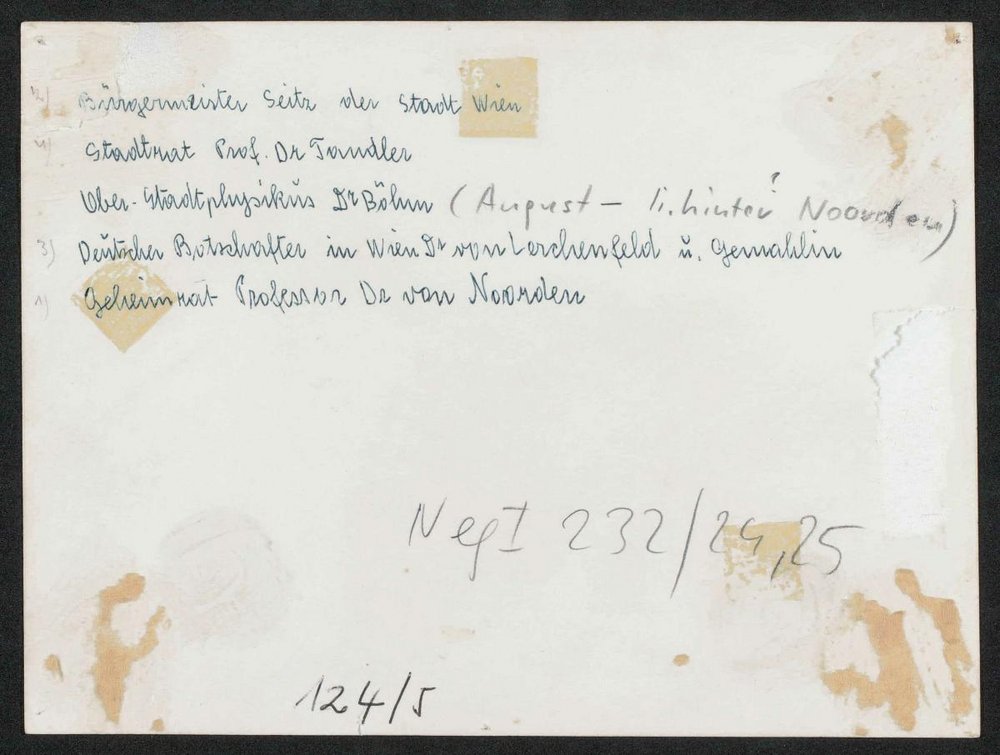 2) Bürgermeister Seitz der Stadt Wien
4) Stadtrat Prof. Dr Tandler
Ober-Stadtphysikus Dr Böhm (August – li. hinter Noorden)
3) Deutscher Botschafter in Wien Dr von Lerchenfeld u. Gemahlin
1) Geheimrat Professor Dr von Noorden
Neg I 232/24,25
124/5